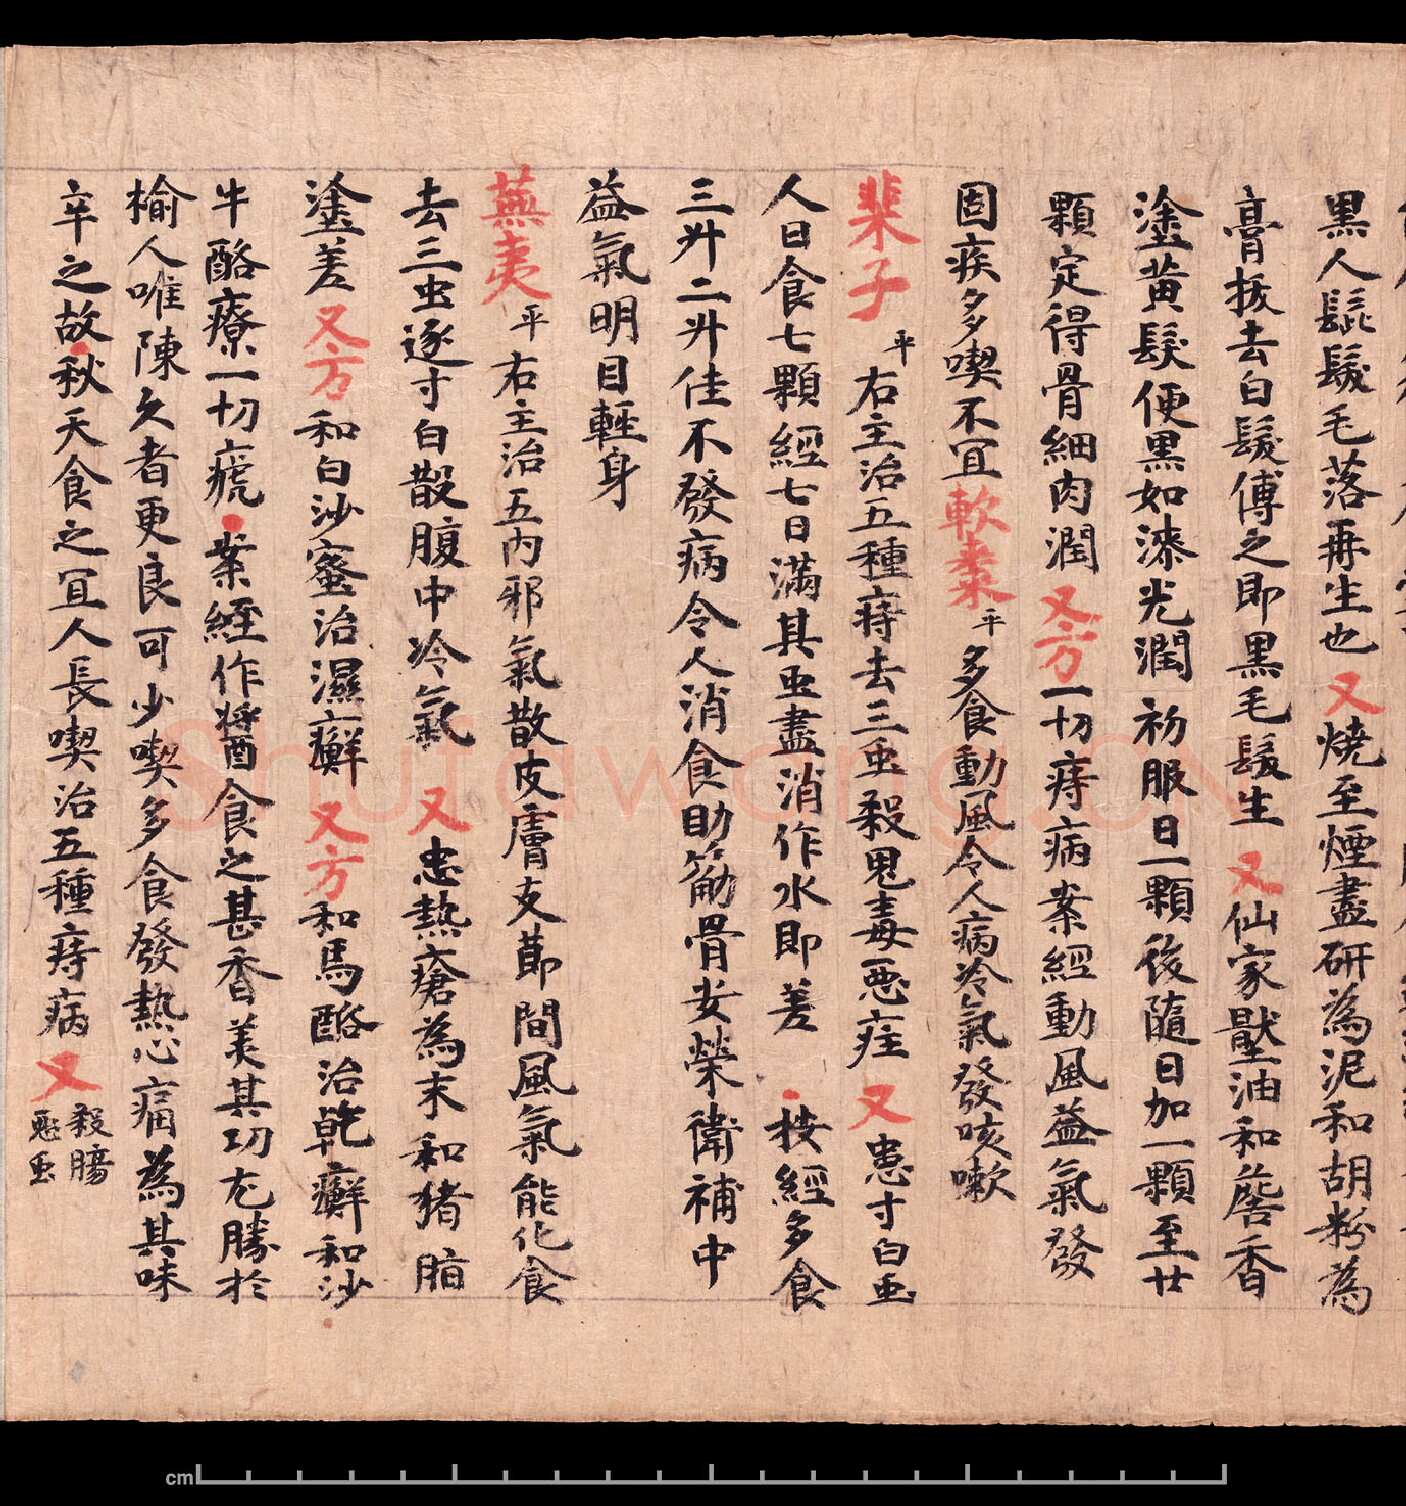 黑人髭髮毛落再生也又燒至煙盡研為泥和胡粉為
膏拔去白髮傅之即黑毛髮生又仙家壓油和簷香
塗黃髮便黑如漆光潤初服日一顆後隨日加一顆至廿
顆定得骨細肉潤又方一切痔病案經動風益氣發
固疾多喫不冝軟棗平多食動風令人病冷氣發咳嗽
榧子平右主治五種痔去三虫殺鬼毒惡疰又患寸白虫
人日食七顆經七日滿其虫盡消作水即差按經多食
三升二升佳不發病令人消食助筋骨安榮衛補中
益氣明目輕身
蕪夷平右主治五內邪氣散皮膚支莭間風氣能化食
去三虫逐寸白散腹中冷氣又患熱瘡為末和猪脂
塗差又方和白沙蜜治濕癬又方和馬酪治乾癬和沙
牛酪療一切瘡案經作醬食之甚香美其功尤勝於
榆人唯陳久者更良可少喫多食發熱心痛為其味
辛之故秋天食之冝人長喫治五種痔病又殺腸
惡虫
cm